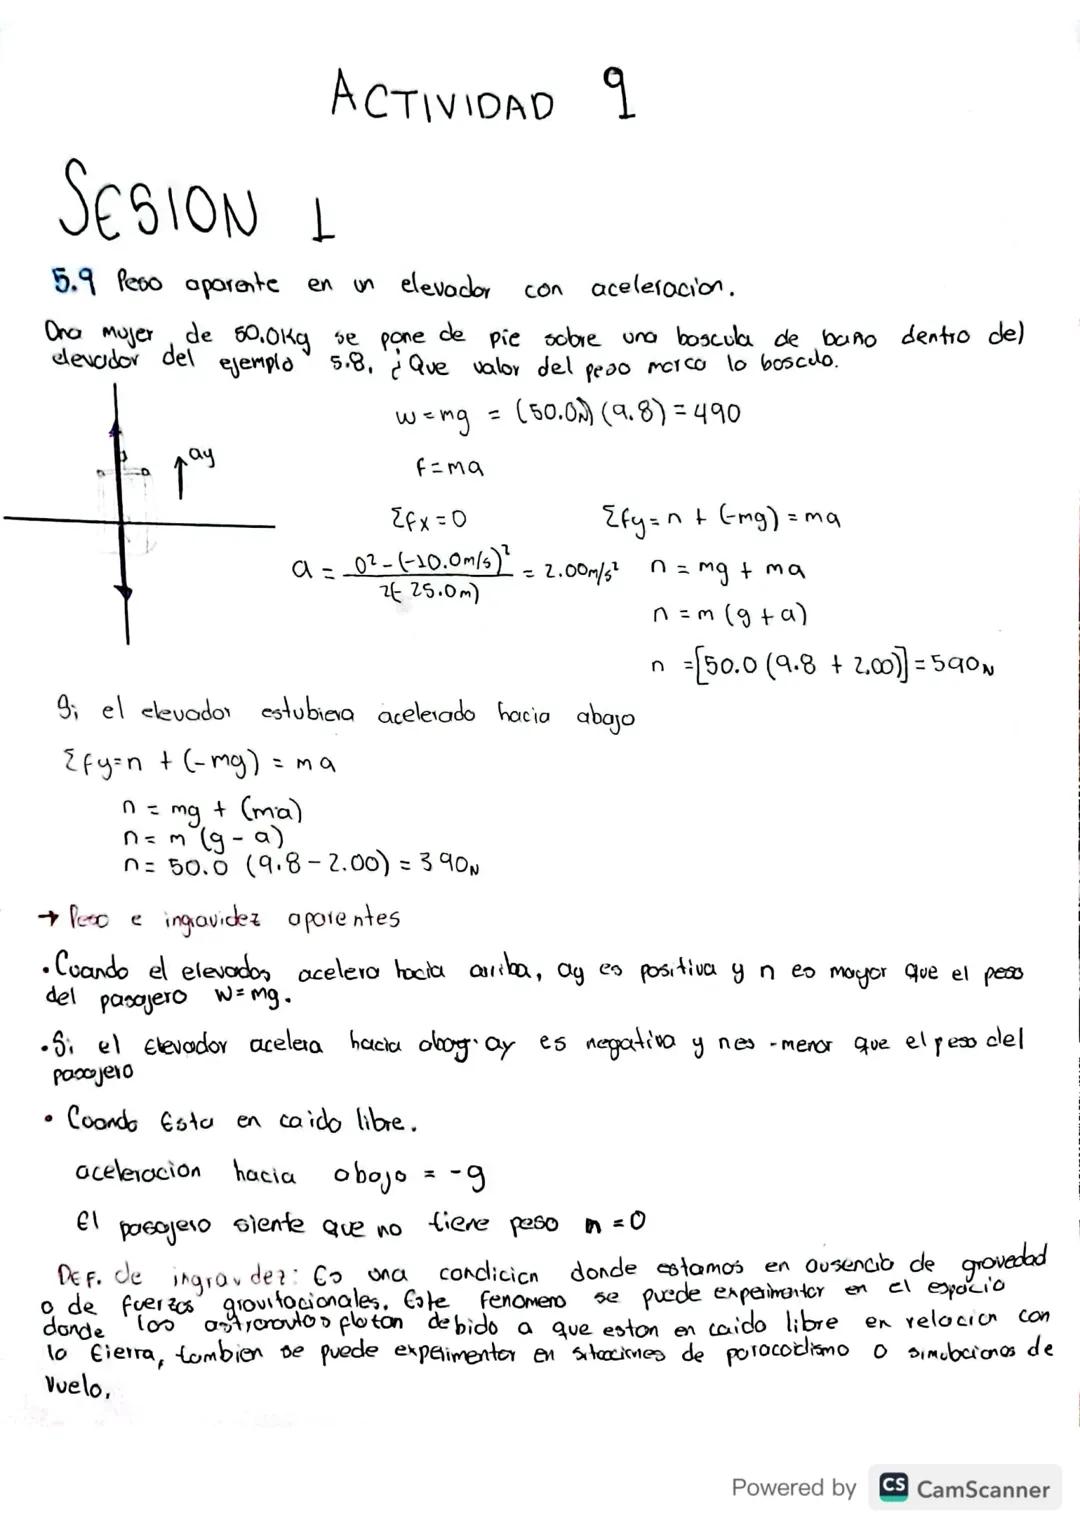 ACTIVIDAD 9
SESION 1
5.9 Peso aparente en un elevador con aceleracion.
Una mujer de 50.0Kg se pone de pie sobre una bascula de baño dentro del
elevador del ejemplo 5.8, ¿Que valor del peso marca la bascula.
w=mg = (50.0N)(9.8)=490
ay
f=ma
Σfx=0 Σfy=n + (-mg) = ma
a = 0²-(-10.0m/s)² / 2(-25.0m) = 2.00m/s² n = mg + ma
n = m (g+a)
n =[50.0 (9.8 + 2.00)]=590N
Si el elevador estubiera acelerado hacia abajo
Σfy=n + (-mg) = ma
n = mg + (ma)
n= m (g-a)
n= 50.0 (9.8-2.00) = 390N
→ Peso e ingravidez aparentes
•Cuando el elevador acelera hacia arriba, ay es positiva y n es mayor que el peso
del pasajero w=mg.
•Si el Elevador acelera hacia abajo ay es negativa y n es -menor que el peso del
pasajero
• Cuando Esta en caido libre.
aceleracion hacia abajo = -g
El pasajero siente que no tiene peso n=0
DEF. de ingravidez: Es una condicion donde estamos en ausencia de gravedad
o de fuerzas gravitacionales. Este fenomeno se puede experimentar en el espacio
donde los astronautas flotan debido a que estan en caido libre en relacion con
la tierra, tambien se puede experimentar en situaciones de paracaidismo o simulaciones de
Vuelo.
Powered by CS CamScanner